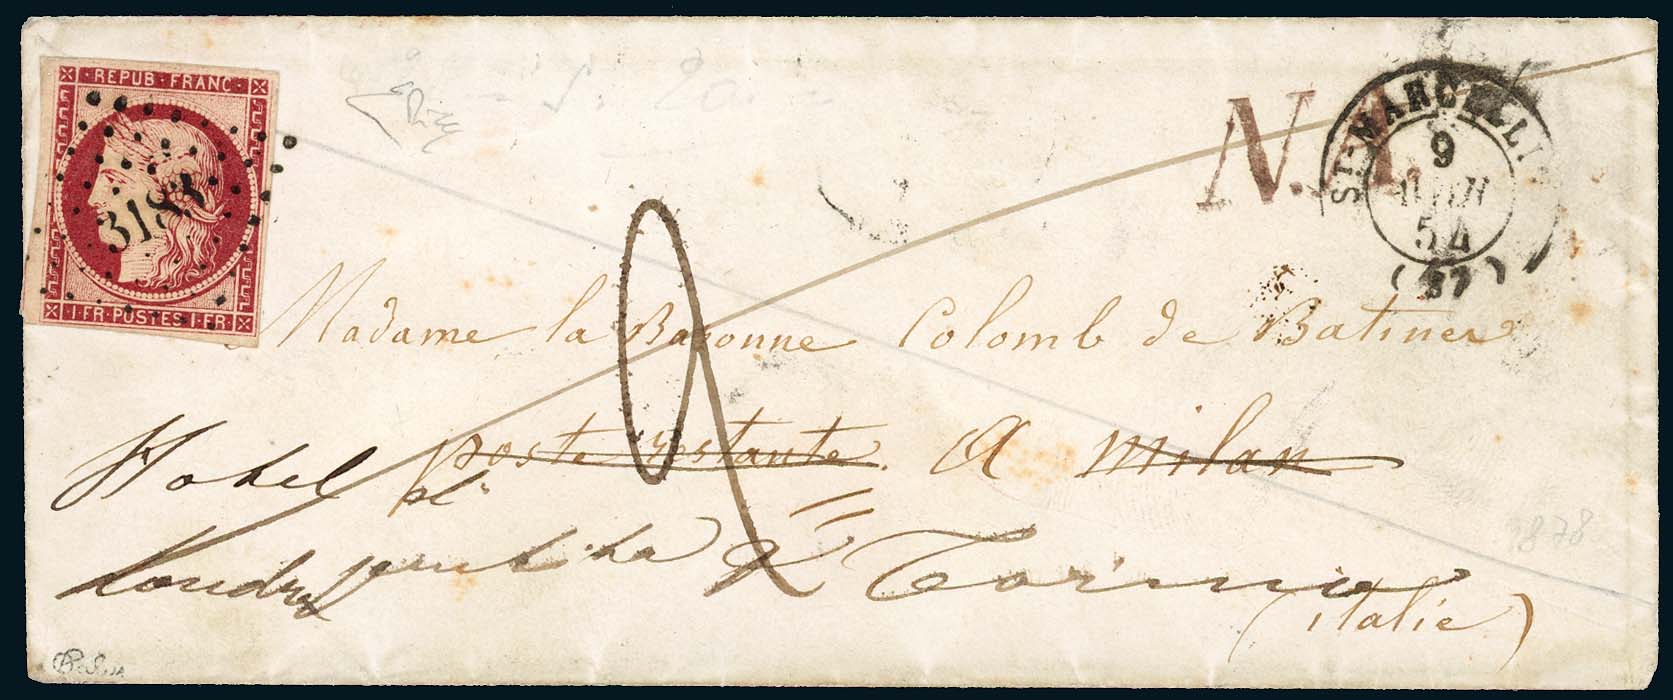 REPUB·FRANC
3183
1·FR·POSTES·1·FR
N. 1.
ST-MARCELLIN
9
JUIN
54
(37)
Madame la Baronne Colomb de Batines
poste restante. A Milan
Hotel
Londres
Torino
(italie)
1878